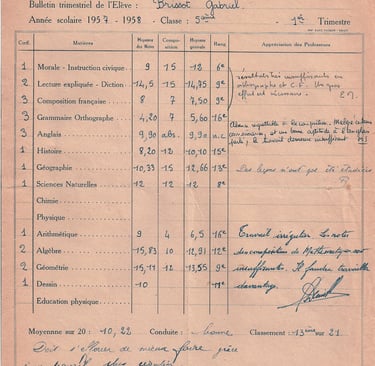 Bulletin trimestriel de l'Elève : Brissot Gabriel
Année scolaire 1957 - 1958 - Classe : 5ème 1er Trimestre
Coef. Matières Moyenne des Notes Composition Moyenne générale Rang Appréciation des Professeurs
1 Morale - Instruction civique 9 15 12 6e
2 Lecture expliquée - Diction 14,5 15 14,75 9e
3 Composition française 8 7 7,50 9e
résultats insuffisants en
orthographe et C.F. Un gros
effort est nécessaire.
3 Grammaire Orthographe 4,20 7 5,60 16e
3 Anglais 9,90 abs. 9,90 n.c
1 Histoire 8,20 12 10,10 15e
1 Géographie 10,33 15 12,66 13e Les leçons n'ont pas été étudiées
1 Sciences Naturelles 12 12 12 8e
Chimie
Physique
1 Arithmétique 9 4 6,5 16e Travail irrégulier. Les notes
2 Algèbre 15,83 10 12,91 12e de compositions de Mathématiques sont
2 Géométrie 15,11 12 13,55 9e insuffisantes. Il faudra travailler
1 Dessin 10 11e davantage.
Éducation physique
Moyenne sur 20 : 10,22 Conduite : bonne Classement : 13ème sur 21
Doit s'efforcer de mieux faire grâce